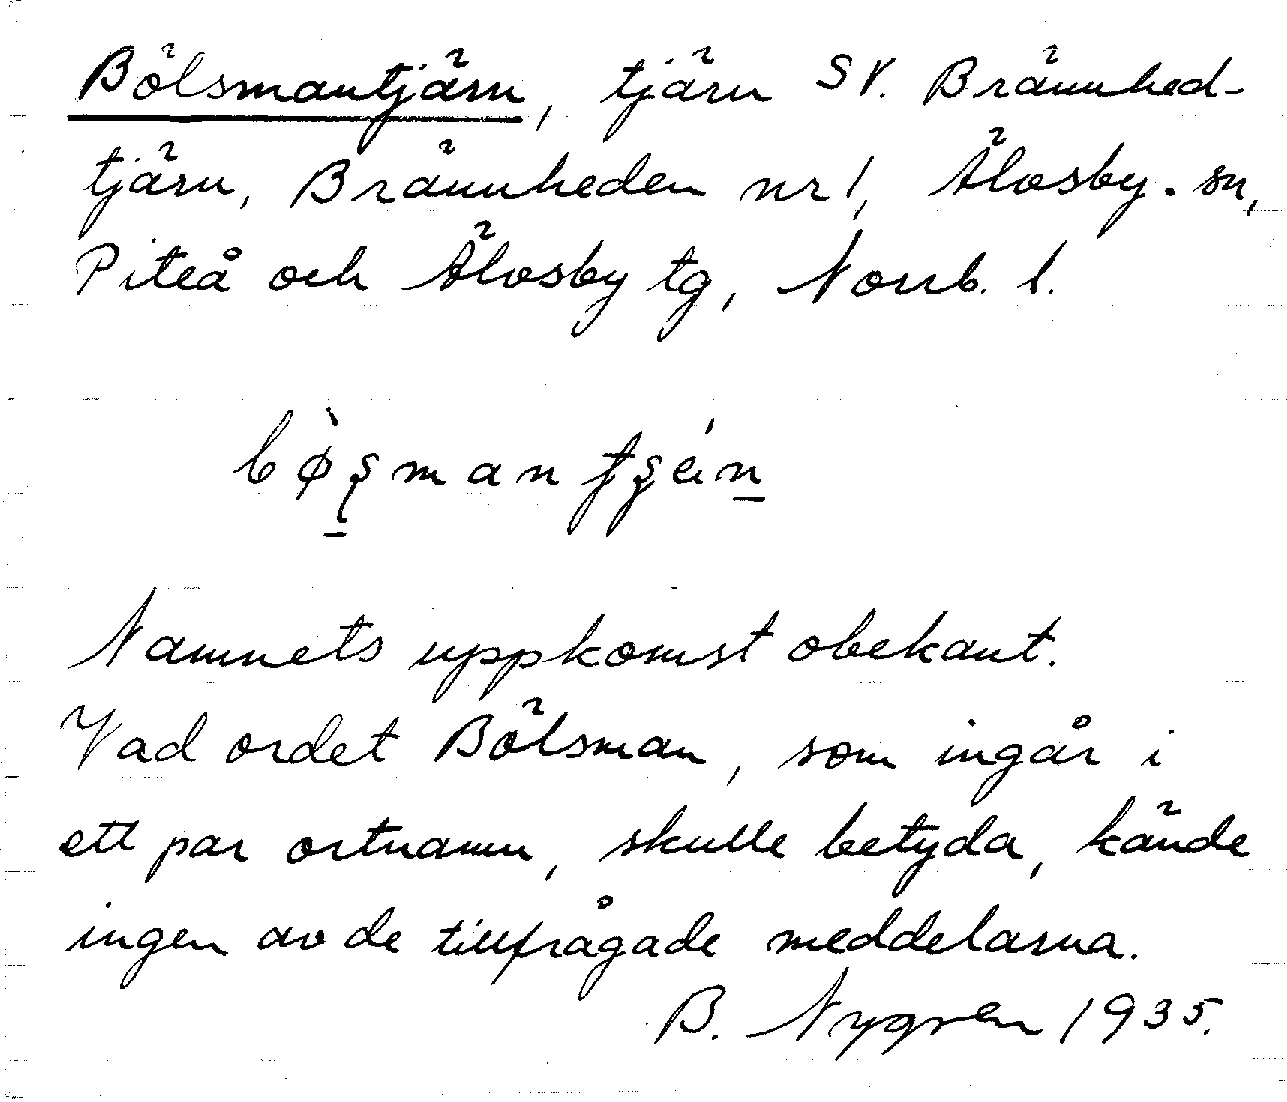 Bölsmantjärn, tjärn SV. Brännhed-
tjärn, Brännheden nr 1, Älvsby. sn,
Piteå och Älvsby tg, Norrb. l.
Namnets uppkomst obekant.
Vad ordet Bölsman, som ingår i
ett par ortnamn, skulle betyda, kände
ingen av de tillfrågade meddelarna.
B. Nygren 1935.